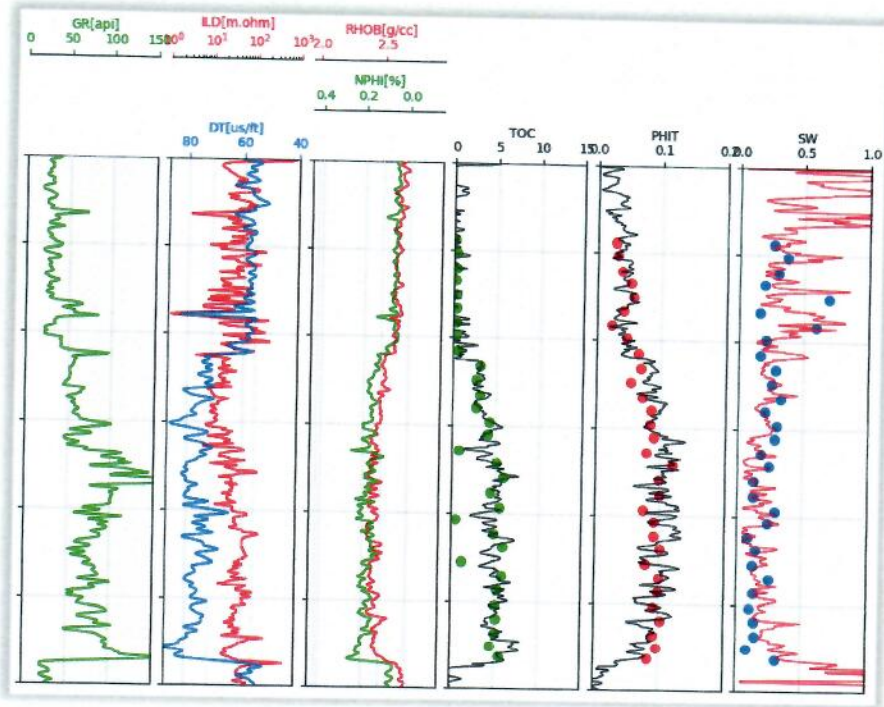 GR[api]
0 50 100 150
ILD[m.ohm]
10⁰ 10¹ 10² 10³
RHOB[g/cc]
2.0 2.5
NPHI[%]
0.4 0.2 0.0
DT[us/ft]
80 60 40
TOC
0 5 10 15
PHIT
0.0 0.1 0.2
SW
0.0 0.5 1.0